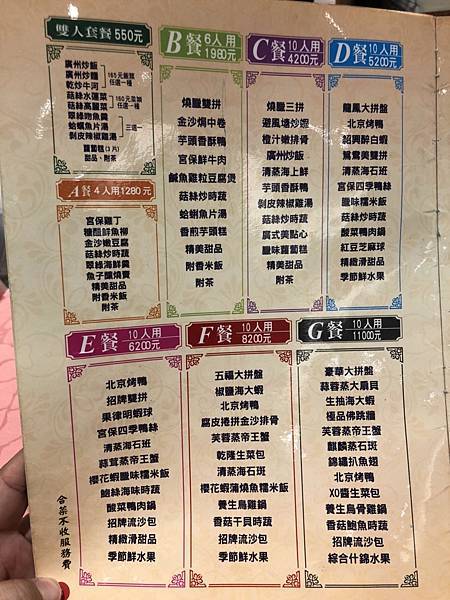 雙人套餐 550元
廣州炒飯
廣州炒麵
乾炒牛河
165元飯類
任選一種
菇絲水蓮菜
菇絲高麗菜
160元菜類
任選一種
翠綠吻魚羹
蛤蠣魚片湯
剝皮辣椒雞湯
三選一
蘿蔔糕(3片)
甜品、附茶
A餐 4人用1280元
宮保雞丁
糖醋鮮魚柳
金沙嫩豆腐
菇絲炒時蔬
翠綠海鮮羹
魚子釀燒賣
精美甜品
附香米飯
附茶
B餐 6人用
1980元
燒臘雙拼
金沙焗中卷
芋頭香酥鴨
宮保鮮牛肉
鹹魚雞粒豆腐煲
菇絲炒時蔬
蛤蠣魚片湯
香煎芋頭糕
精美甜品
附香米飯
附茶
C餐 10人用
4200元
燒臘三拼
避風塘炒蝦
橙汁嫩排骨
廣州炒飯
清蒸海上鮮
芋頭香酥鴨
剝皮辣椒雞湯
菇絲炒時蔬
廣式美點心
臘味蘿蔔糕
精美甜品
附茶
D餐 10人用
5200元
龍鳳大拼盤
北京烤鴨
紹興醉白蝦
鴛鴦美雙拼
清蒸海石班
宮保四季鴨絲
臘味糯米飯
菇絲炒時蔬
酸菜鴨肉鍋
紅豆芝麻球
精緻滑甜品
季節鮮水果
E餐 10人用
6200元
北京烤鴨
招牌雙拼
果律明蝦球
宮保四季鴨絲
清蒸海石班
蒜茸蒸帝王蟹
櫻花蝦臘味糯米飯
鮑絲海味時蔬
酸菜鴨肉鍋
招牌流沙包
精緻滑甜品
季節鮮水果
F餐 10人用
8200元
五福大拼盤
椒鹽海大蝦
北京烤鴨
腐皮捲拼金沙排骨
芙蓉蒸帝王蟹
乾隆生菜包
清蒸海石班
櫻花蝦蒲燒魚糯米飯
養生烏雞鍋
香菇干貝時蔬
招牌流沙包
季節鮮水果
G餐 10人用
11000元
豪華大拼盤
蒜蓉蒸大扇貝
生抽海大蝦
極品佛跳牆
芙蓉蒸帝王蟹
麒麟蒸石斑
錦繡扒魚翅
北京烤鴨
XO醬生菜包
養生烏骨雞鍋
香菇鮑魚時蔬
招牌流沙包
綜合什錦水果
合菜不收服務費